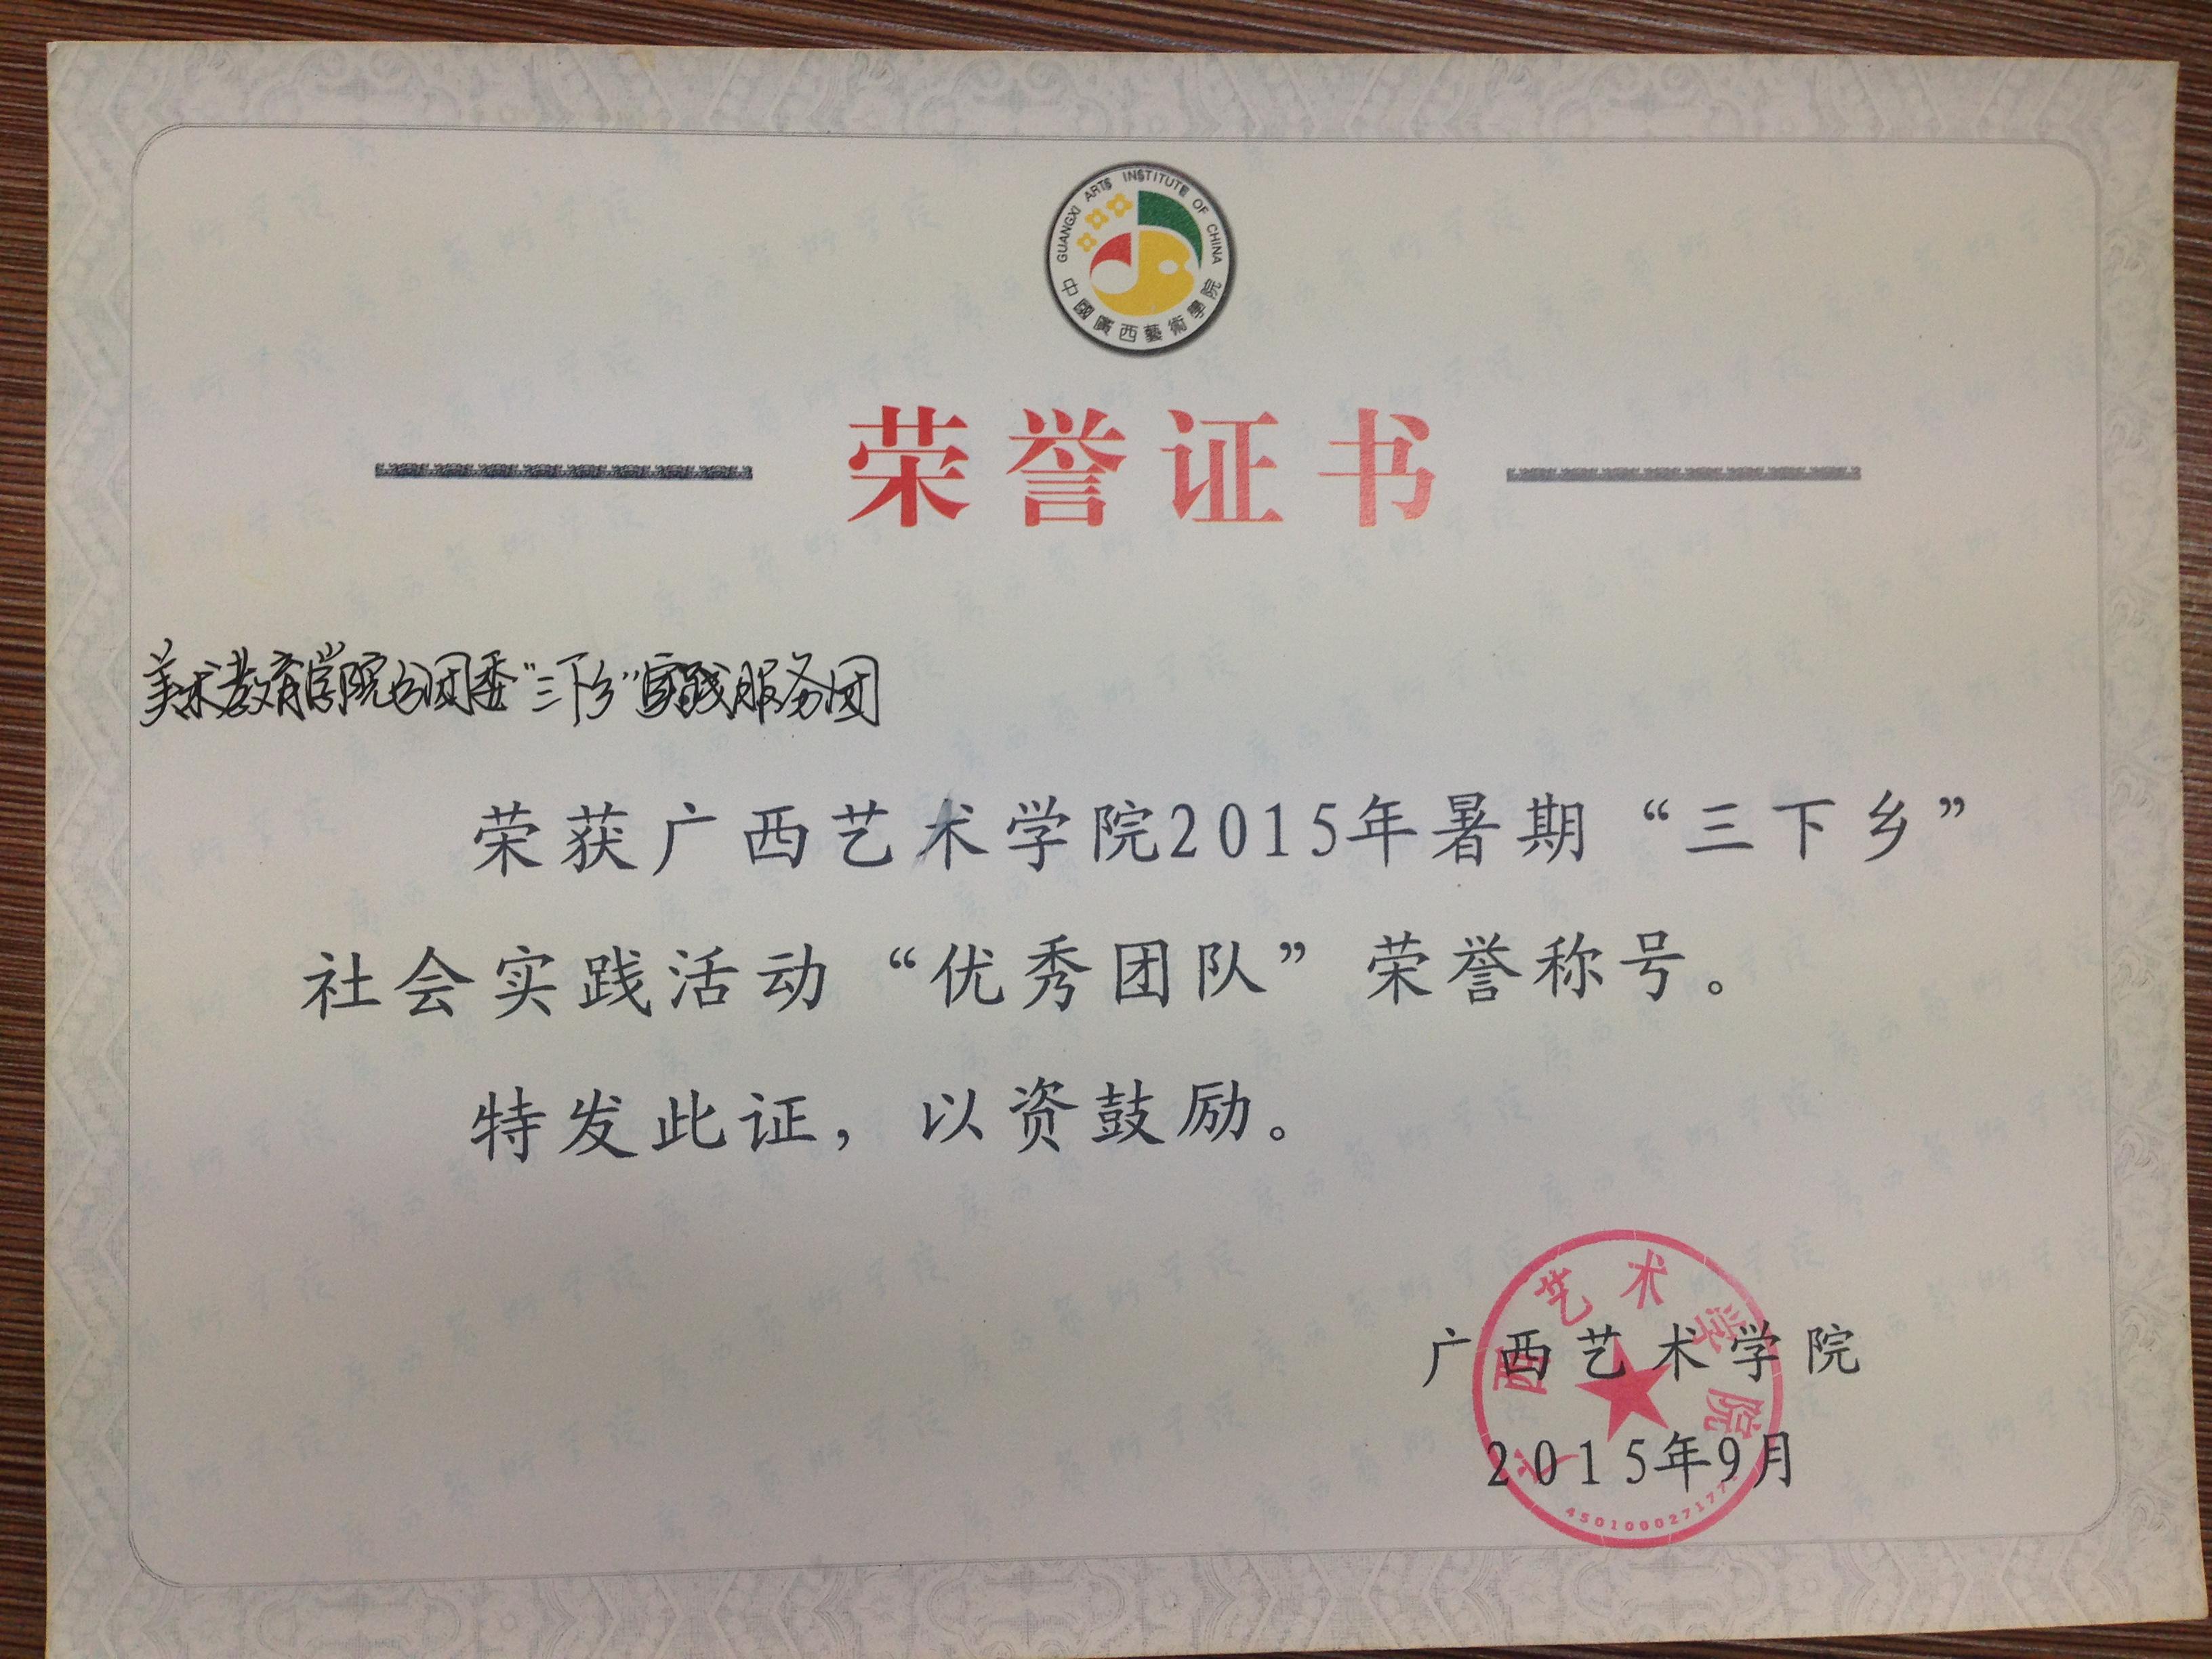 GUANGXI ARTS INSTITUTE OF CHINA
中國廣西藝術學院
荣誉证书
美术教育学院分团委“三下乡”实践服务团
荣获广西艺术学院2015年暑期“三下乡”
社会实践活动“优秀团队”荣誉称号。
特发此证，以资鼓励。
广西艺术学院
2015年9月
广西艺术学院